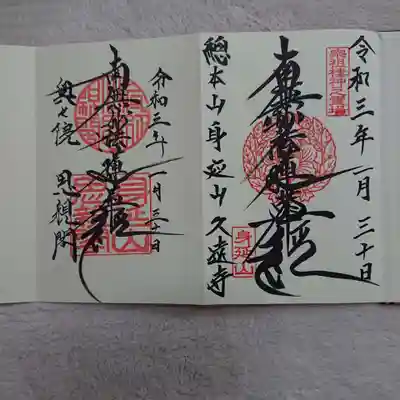 令和三年一月三十日
宗祖棲神之霊場
南無妙法蓮華経
身延山
總本山身延山久遠寺
令和三年一月三十日
南無妙法蓮華経
奥之院 思親閣